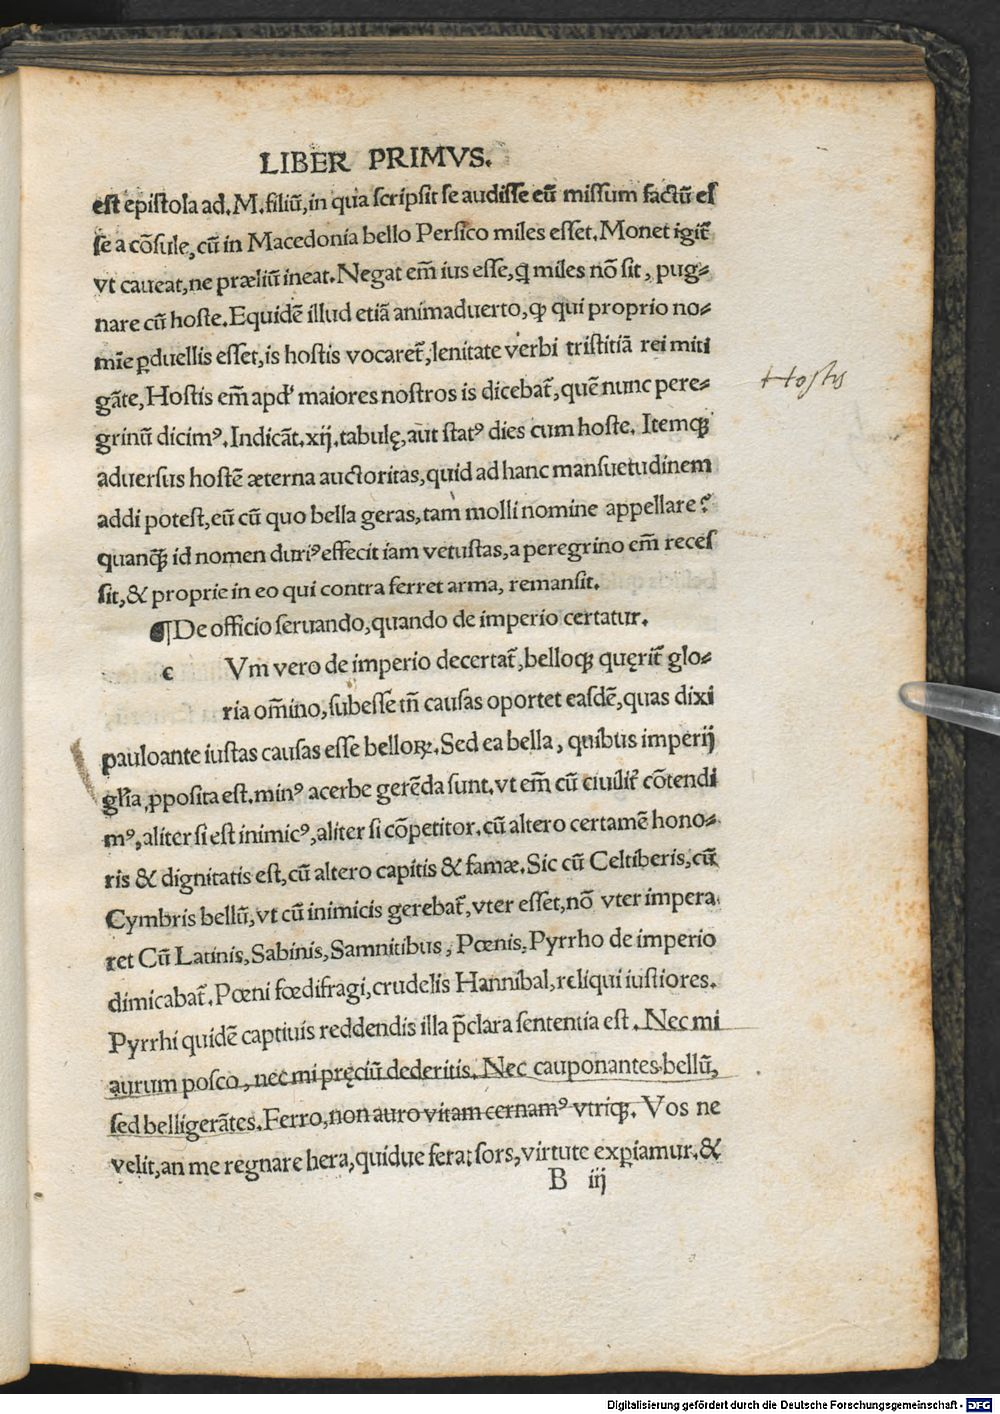 LIBER PRIMVS.
est epistola ad. M. filiū, in qua scripsit se audisse eū missum factū es
se a cōsule, cū in Macedonia bello Persico miles esset. Monet igit᷑
vt caueat, ne præliū ineat. Negat em̄ ius esse, ꝗ miles nō sit, pug⸗
nare cū hoste. Equidē illud etiā animaduerto, ꝙ qui proprio no⸗
mīe ꝑduellis esset, is hostis vocaret᷑, lenitate verbi tristitiā rei miti
gāte, Hostis em̄ apd' maiores nostros is dicebat᷑, quē nunc pere⸗
Hostis
grinū dicimꝰ. Indicāt. xij. tabulę, aut statꝰ dies cum hoste. Itemꝗ
aduersus hostē æterna auctoritas, quid ad hanc mansuetudinem
addi potest, eū cū quo bella geras, tam molli nomine appellare?
quanꝗ id nomen duriꝰ effecit iam vetustas, a peregrino em̄ reces
sit, & proprie in eo qui contra ferret arma, remansit.
¶De officio seruando, quando de imperio certatur.
c Vm vero de imperio decertat᷑, belloꝗ quęrit᷑ glo⸗
ria om̄ino, subesse tn̄ causas oportet easdē, quas dixi
pauloante iustas causas esse belloꝝ. Sed ea bella, quibus imperij
gl̄ia ꝓposita est. minꝰ acerbe gerēda sunt. vt em̄ cū ciuilit᷑ cōtendi
mꝰ, aliter si est inimicꝰ, aliter si cōpetitor. cū altero certamē hono⸗
ris & dignitatis est, cū altero capitis & famæ. Sic cū Celtiberis, cū
Cymbris bellū, vt cū inimicis gerebat᷑, vter esset, nō vter impera
ret Cū Latinis, Sabinis, Samnitibus, Pœnis, Pyrrho de imperio
dimicabat᷑. Pœni fœdifragi, crudelis Hannibal, reliqui iustiores.
Pyrrhi quidē captiuis reddendis illa p̄clara sententia est. Nec mi
aurum posco, nec mi pręciū dederitis. Nec cauponantes bellū,
sed belligerātes. Ferro, non auro vitam cernamꝰ vtriꝗ. Vos ne
velit, an me regnare hera, quidue ferat sors, virtute exꝑiamur. &
B iij
Digitalisierung gefördert durch die Deutsche Forschungsgemeinschaft - DFG